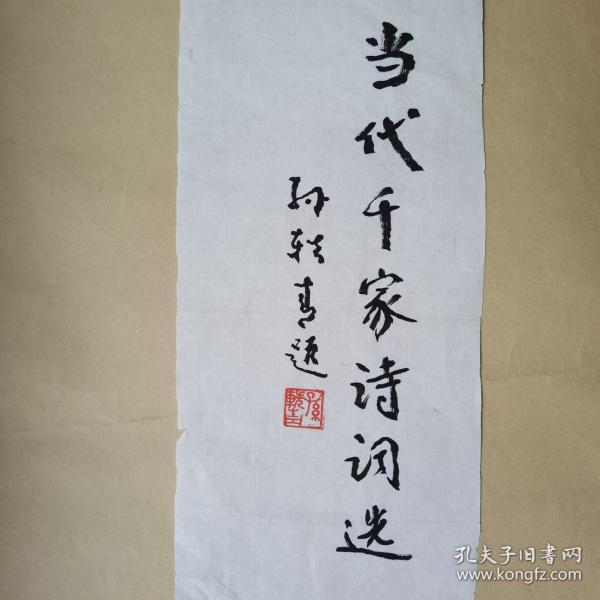 当代千家诗词选
孙轶青题
孔夫子旧书网
www.kongfz.com